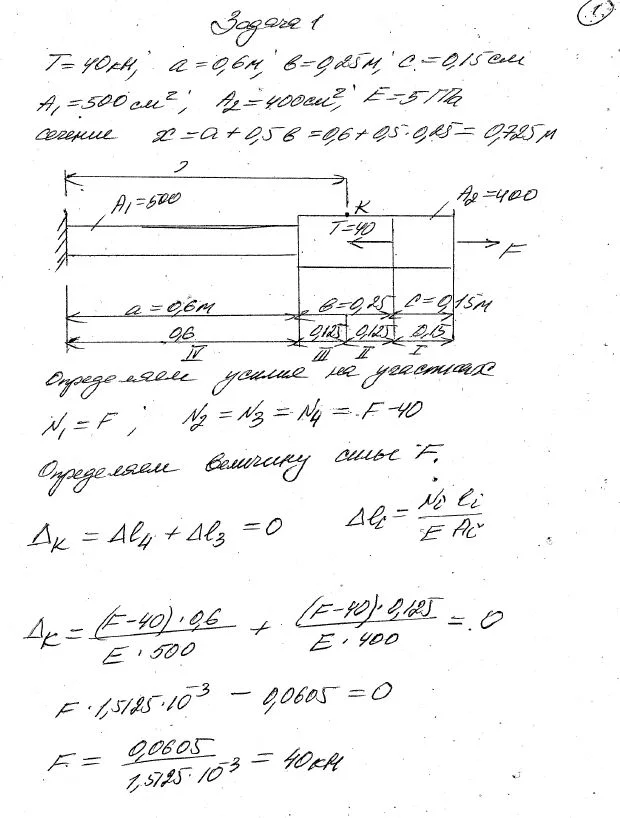 Задача 1
1.
T=40кН; a=0,6м; в=0,25м; c=0,15см
A₁=500см²; A₂=400см²; E=5ГПа
сечение x=a+0,5в=0,6+0,5·0,25=0,725м
A₁=500
K
A₂=400
T=40
F
a=0,6м в=0,25 c=0,15м
0,6 0,125 0,125 0,15
IV III II I
Определяем усилия на участках
N₁=F; N₂=N₃=N₄=F-40
Определяем величину силы F.
Δк = Δl₄ + Δl₃ = 0 Δlᵢ = Nᵢ lᵢ / E Aᵢ
Δк = (F-40)·0,6 / E·500 + (F-40)·0,125 / E·400 = 0
F·1,5125·10⁻³ - 0,0605 = 0
F = 0,0605 / 1,5125·10⁻³ = 40кН